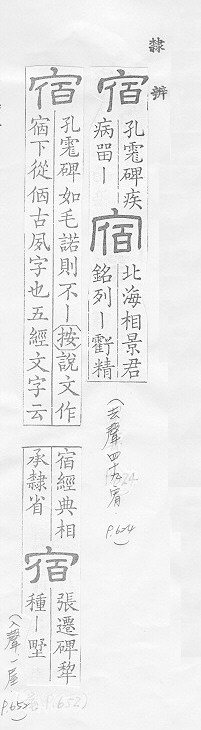 隸辨
宿 孔碑疾
病畱丨
宿 北海相景君
銘列丨虧精
(去聲四十九宥 P.624)
宿 孔碑如毛諾則不丨按說文作
㝛下從㑉古夙字也五經文字云
宿經典相
承隸省
宿 張遷碑犂
種丨墅
(入聲一屋 P.652)